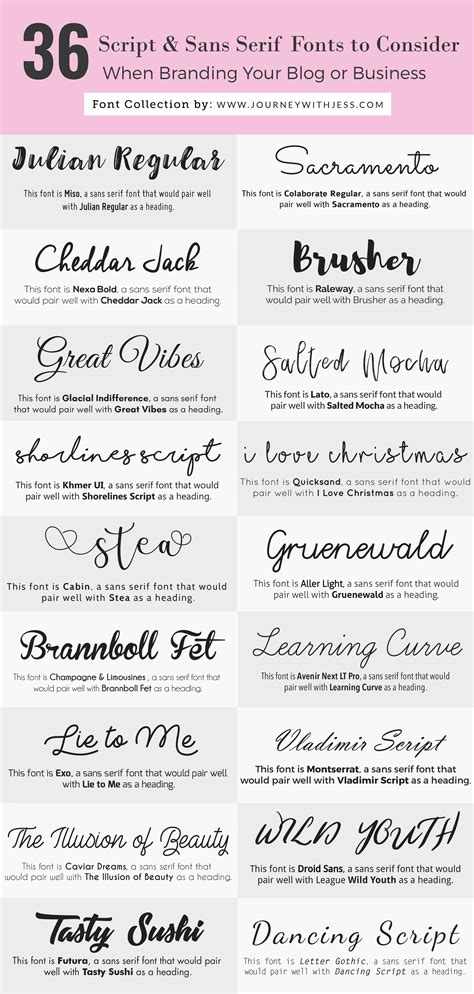 36 Script & Sans Serif Fonts to Consider
When Branding Your Blog or Business
Font Collection by: WWW.JOURNEYWITHJESS.COM
Julian Regular
This font is Miso, a sans serif font that would pair well
with Julian Regular as a heading.
Sacramento
This font is Colaborate Regular, a sans serif font that would
pair well with Sacramento as a heading.
Cheddar Jack
This font is Nexa Bold, a sans serif font that
would pair well with Cheddar Jack as a heading.
Brusher
This font is Raleway, a sans serif font that
would pair well with Brusher as a heading.
Great Vibes
This font is Glacial Indifference, a sans serif font
that would pair well with Great Vibes as a heading.
Salted Mocha
This font is Lato, a sans serif font that would
pair well with Salted Mocha as a heading.
shorlines script
This font is Khmer UI, a sans serif font that would
pair well with Shorelines Script as a heading.
i love christmas
This font is Quicksand, a sans serif font that would
pair well with I Love Christmas as a heading.
stea
This font is Cabin, a sans serif font that would
pair well with Stea as a heading.
Gruenewald
This font is Aller Light, a sans serif font that would
pair well with Gruenewald as a heading.
Brannboll Fet
This font is Champagne & Limousines , a sans serif font that
would pair well with Brannboll Fet as a heading.
Learning Curve
This font is Avenir Next LT Pro, a sans serif font that would
pair well with Learning Curve as a heading.
Lie to Me
This font is Exo, a sans serif font that would pair well
with Lie to Me as a heading.
Vladimir Script
This font is Montserrat, a sans serif font that would
pair well with Vladimir Script as a heading.
The Illusion of Beauty
This font is Caviar Dreams, a sans serif font that would pair
well with The Illusion of Beauty as a heading.
WILD YOUTH
This font is Droid Sans, a sans serif font that would
pair well with League Wild Youth as a heading.
Tasty Sushi
This font is Futura, a sans serif font that would pair
well with Tasty Sushi as a heading.
Dancing Script
This font is Letter Gothic, a sans serif font that
would pair well with Dancing Script as a heading.